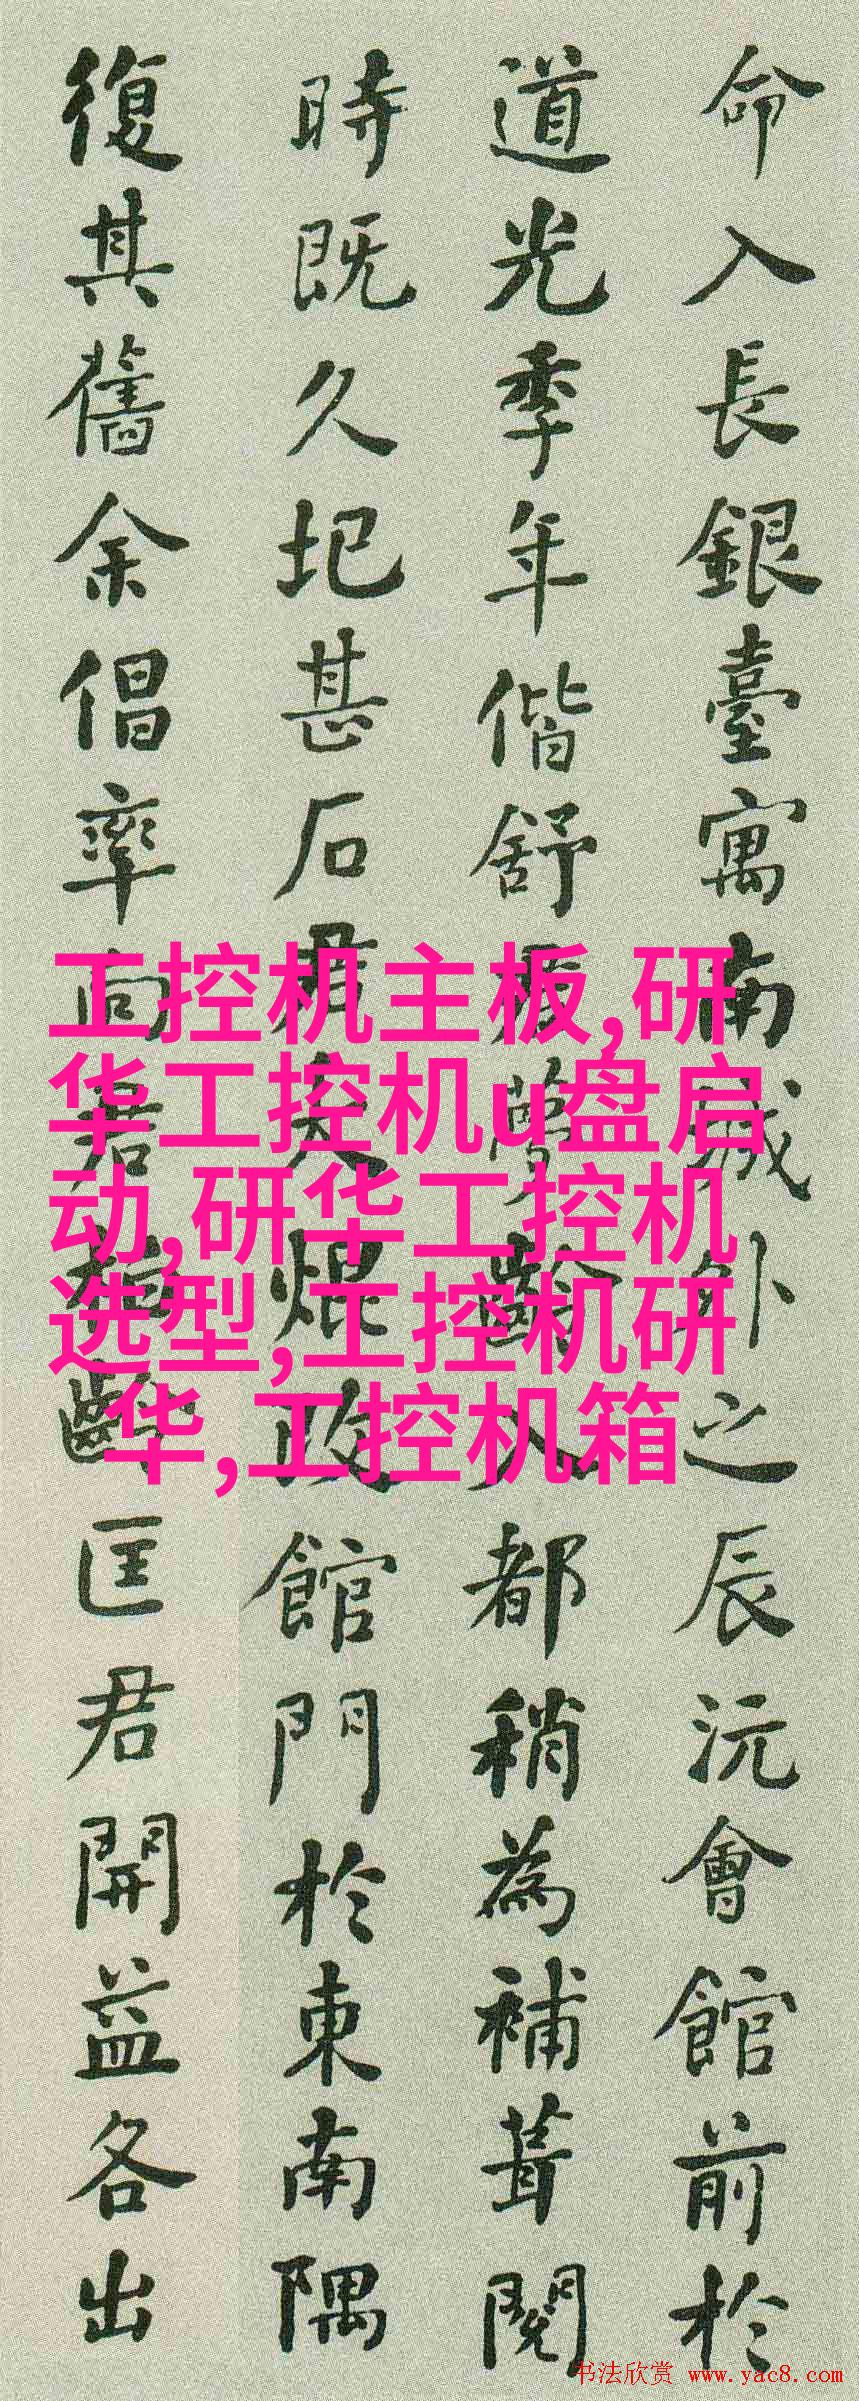 命入長銀臺寓南城外之辰沅會館前於
道光季年偕舒君夢齡入都稍為補葺閱
時既久圮甚石君文焜改館門於東南隅
復其舊余倡率向君植
匡君開益各出
工控机主板,研
华工控机u盘启
动,研华工控机
选型,工控机研
华,工控机箱
书法欣赏 www.yac8.com